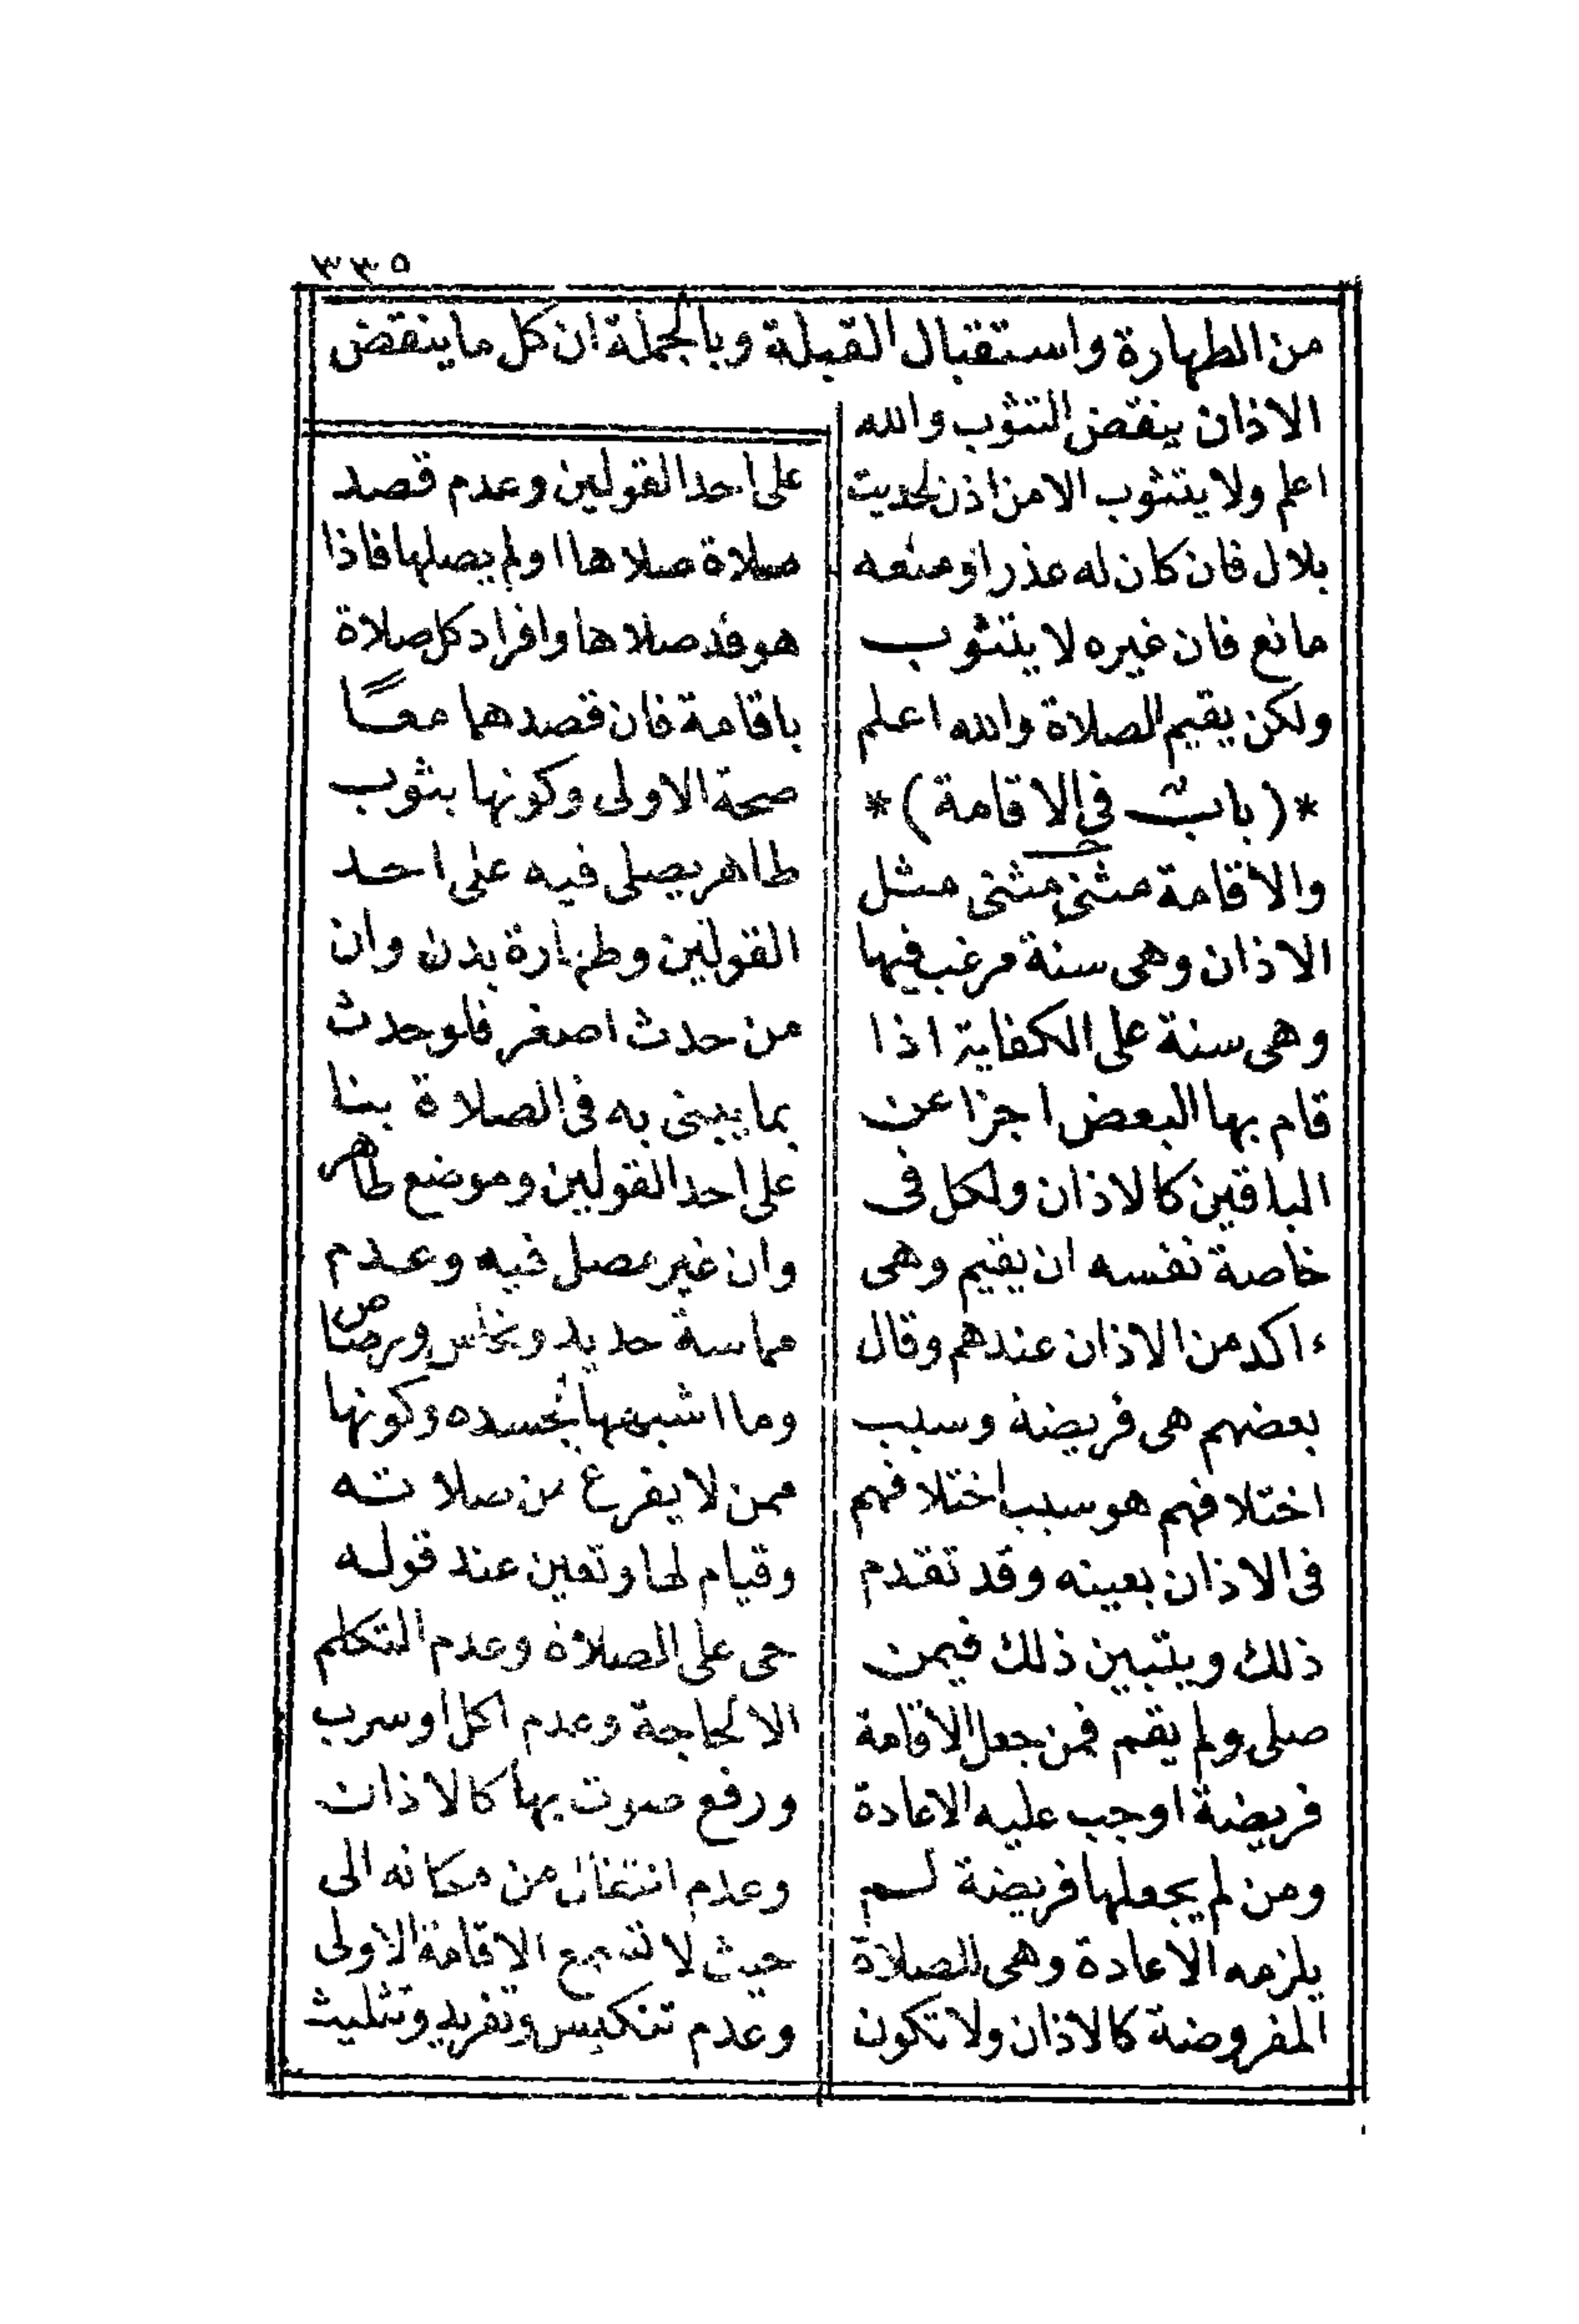 ٣٣٥
من الطهارة واستقبال القبلة وبالجملة ان كل ما ينقض
الاذان ينقض التثوب والله
اعلم ولا يتثوب الا من اذن لحديث
بلال فان كان له عذر او منعه
مانع فان غيره لا يتثوب
ولكن يقيم الصلاة والله اعلم
*(باب في الاقامة)*
والاقامة مثنى مثنى مثل
الاذان وهى سنة مرغب فيها
وهى سنة على الكفاية اذا
قام بها البعض اجزا عن
الباقين كالاذان ولكل فى
خاصة نفسه ان يقيم وهى
ءاكد من الاذان عندهم وقال
بعضهم هى فريضة وسبب
اختلافهم هو سبب اختلافهم
فى الاذان بعينه وقد تقدم
ذلك ويتبين ذلك فيمن
صلى ولم يقم فمن جعل الاقامة
فريضة اوجب عليه الاعادة
ومن لم يجعلها فريضة لم
يلزمه الاعادة وهى للصلاة
المفروضة كالاذان ولا تكون
على احد القولين وعدم قصد
صلاة صلاها او لم يصلها فاذا
هو قد صلاها وافراد كل صلاة
باقامة فان قصدهما معا
صحة الاولى وكونها بثوب
طاهر يصلى فيه على احد
القولين وطهارة بدن وان
من حدث اصغر فلو حدث
بما يبنى به فى الصلاة بنا
على احد القولين وموضع طاهر
وان غير مصل فيه وعدم
مماسة حديد ونحاس ورصاص
وما اشبهها بجسده وكونها
ممن لا يفرغ من صلاته
وقيام لها وتعين عند قوله
حى على الصلاة وعدم التكلم
الا لحاجة وعدم اكل او سرب
ورفع صوت بها كالاذان
وعدم انتقال من مكانه الى
حيث لا تسمع الاقامة الاولى
وعدم تنكيس وتفريد وتثليث